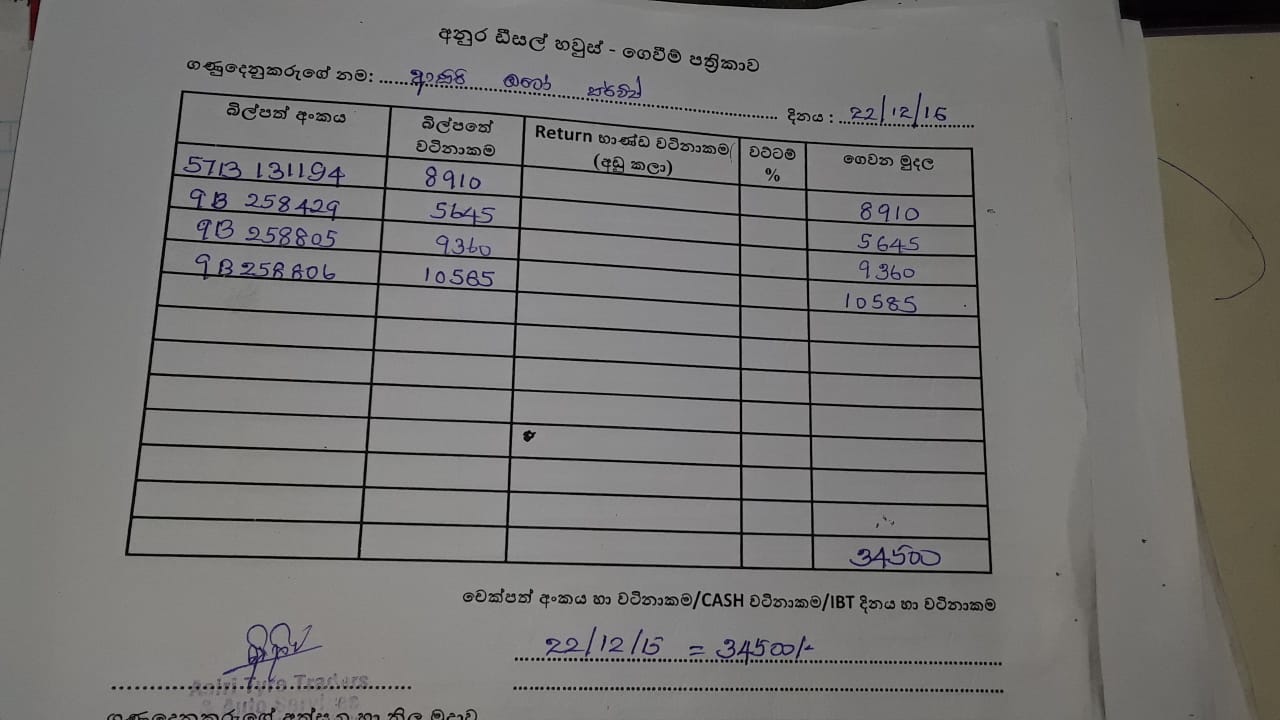 අනුර ඩීසල් හවුස් - ගෙවීම් පත්‍රිකාව
ගණුදෙනුකරුගේ නම: ...... ඔටෝ සර්විස් ...... දිනය : 22/12/15
බිල්පත් අංකය බිල්පතේ වටිනාකම Return භාණ්ඩ වටිනාකම (අඩු කලා) වට්ටම % ගෙවන මුදල
57B 131194 8910 8910
9B 258429 5645 5645
9B 258805 9360 9360
9B 258806 10585 10585
34500
චෙක්පත් අංකය හා වටිනාකම/CASH වටිනාකම/IBT දිනය හා වටිනාකම
22/12/15 = 34500/-
Tyre Traders
ගණුදෙනුකරුගේ අත්සන හා නිල මුද්‍රාව